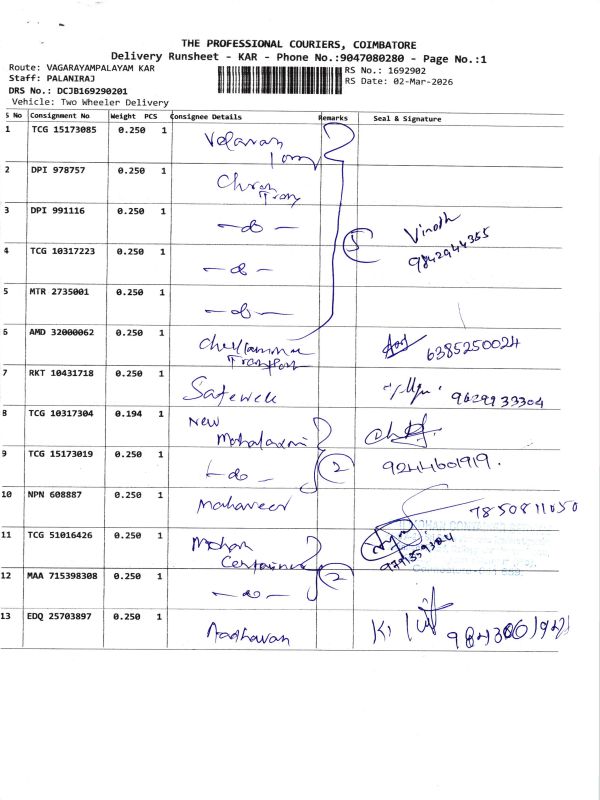 THE PROFESSIONAL COURIERS, COIMBATORE
Delivery Runsheet - KAR - Phone No.:9047080280 - Page No.:1
Route: VAGARAYAMPALAYAM KAR
RS No.: 1692902
Staff: PALANIRAJ
RS Date: 02-Mar-2026
DRS No.: DCJB169290201
Vehicle: Two Wheeler Delivery
S No Consignment No Weight PCS Consignee Details Remarks Seal & Signature
1 TCG 15173085 0.250 1
2 DPI 978757 0.250 1
3 DPI 991116 0.250 1 -do-
5 Vinoth
9842944355
4 TCG 10317223 0.250 1 -do-
5 MTR 2735001 0.250 1 -do-
6 AMD 32000062 0.250 1 Chellamma
Transport
6385250024
7 RKT 10431718 0.250 1 Safewell
9629933304
8 TCG 10317304 0.194 1 New
Mahalaxmi
9 TCG 15173019 0.250 1 -do- 2 9244601919.
10 NPN 608887 0.250 1 Mahaveer
7850811050
11 TCG 51016426 0.250 1 Mohan
Container
9791359324
12 MAA 715398308 0.250 1 -do- 2
13 EDQ 25703897 0.250 1 Aadhavan